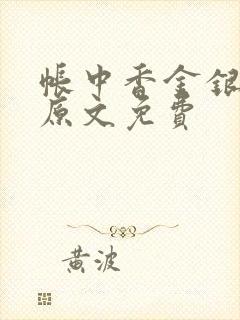 帳中香金銀
原文免費
黃波